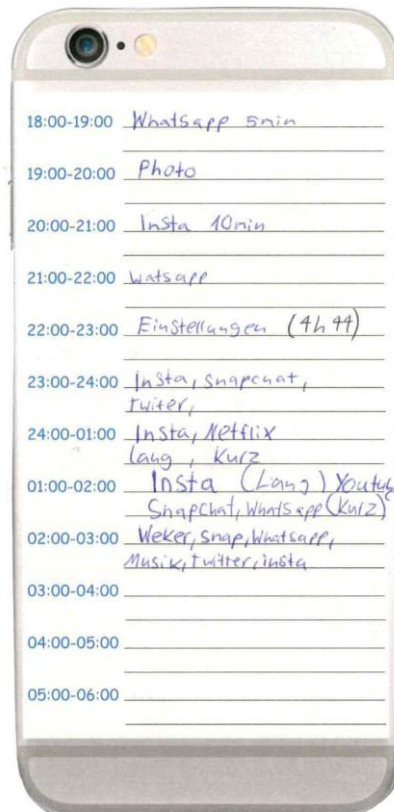 18:00-19:00 Whatsapp 5min
19:00-20:00 Photo
20:00-21:00 Insta 10min
21:00-22:00 watsapp
22:00-23:00 Einstellungen (4h44)
23:00-24:00 Insta, Snapchat,
twiter,
24:00-01:00 Insta, Netflix
lang, kurz
01:00-02:00 Insta (Lang) Youtube
Snapchat, Whatsapp (kurz)
02:00-03:00 Weker, Snap, Whatsapp,
Musik, twitter, insta
03:00-04:00
04:00-05:00
05:00-06:00